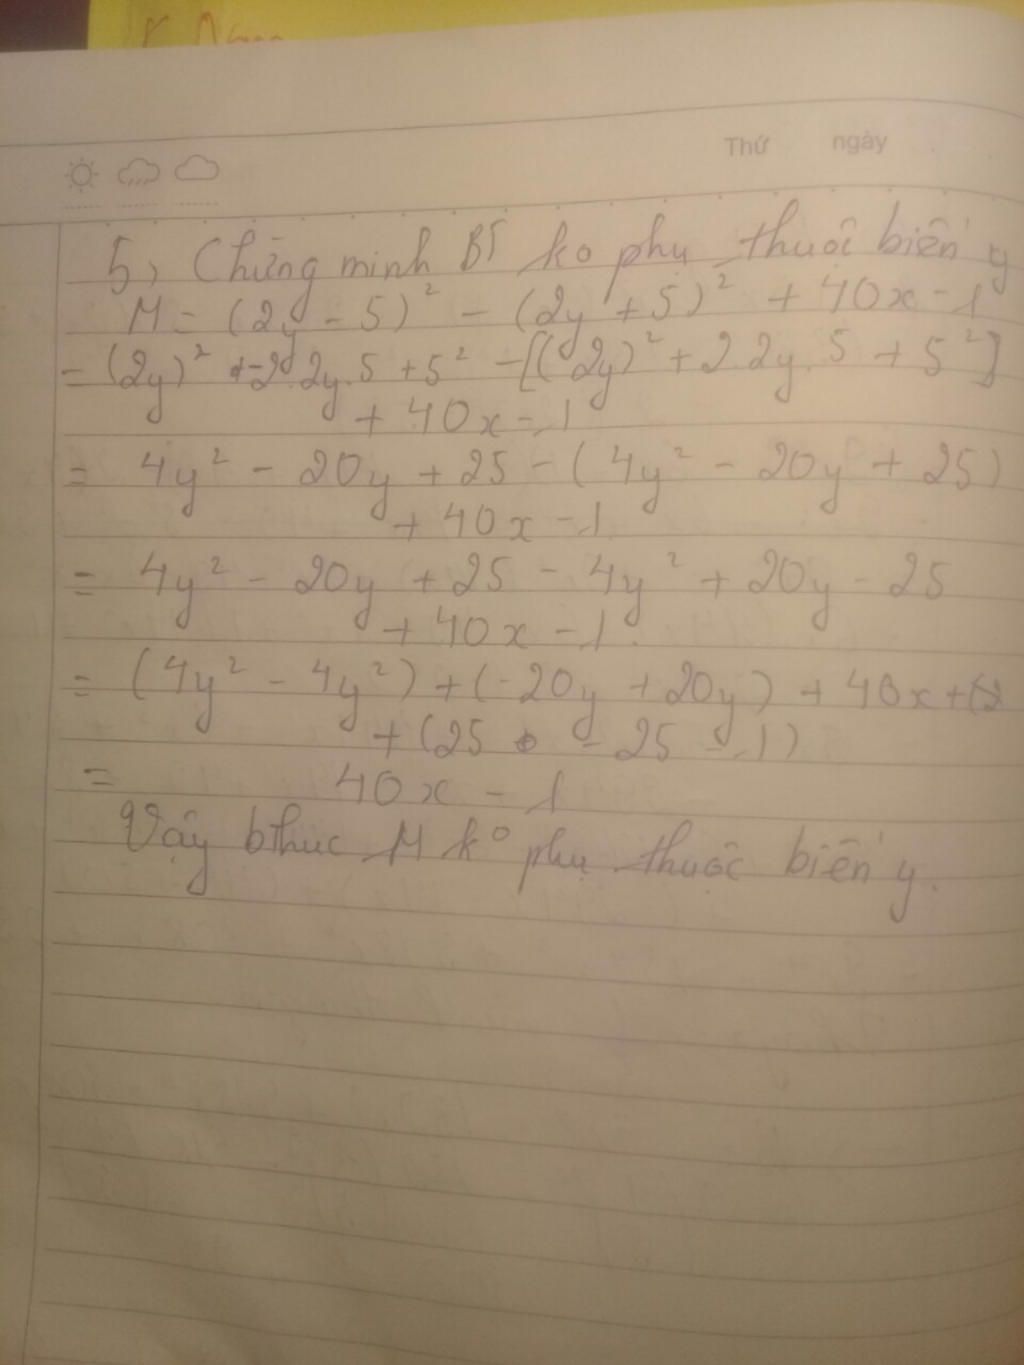 Thứ ngày
5, Chứng minh BT ko phụ thuôc biến y
M = (2y - 5)² - (2y + 5)² + 40x - 1
= (2y)² - 2.2y.5 + 5² - [(2y)² + 2.2y.5 + 5²]
+ 40x - 1
= 4y² - 20y + 25 - (4y² - 20y + 25)
+ 40x - 1
= 4y² - 20y + 25 - 4y² + 20y - 25
+ 40x - 1.
= (4y² - 4y²) + (-20y + 20y) + 40x
+ (25 - 25 - 1)
= 40x - 1
Vậy bthuc M ko phụ thuộc biến y.